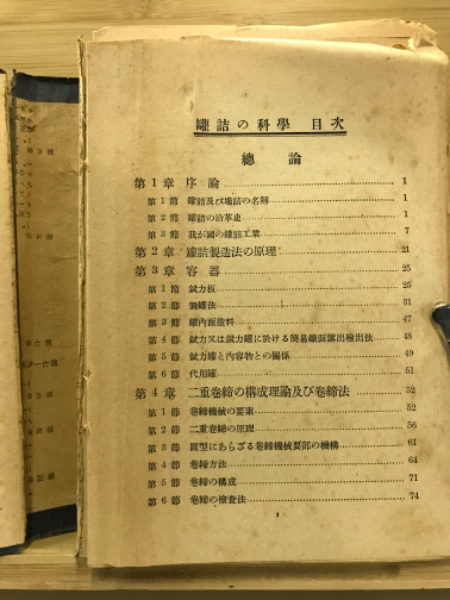 罐詰の科學 目次
總論
第1章 序論 1
第1節 罐詰及び壜詰の名稱 1
第2節 罐詰の沿革史 1
第3節 我が國の罐詰工業 7
第2章 罐詰製造法の原理 21
第3章 容器 25
第1節 鈑力板 25
第2節 製罐法 31
第3節 罐內面塗料 47
第4節 鈑力又は鈑力罐に於ける簡易鐵面露出檢出法 48
第5節 鈑力罐と內容物との關係 49
第6節 代用罐 51
第4章 二重卷締の構成理論及び卷締法 52
第1節 卷締機械の要素 52
第2節 二重卷締の原理 56
第3節 圓型にあらざる卷締機械要部の機構 61
第4節 卷締方法 64
第5節 卷締の構成 71
第6節 卷締の檢査法 74
1